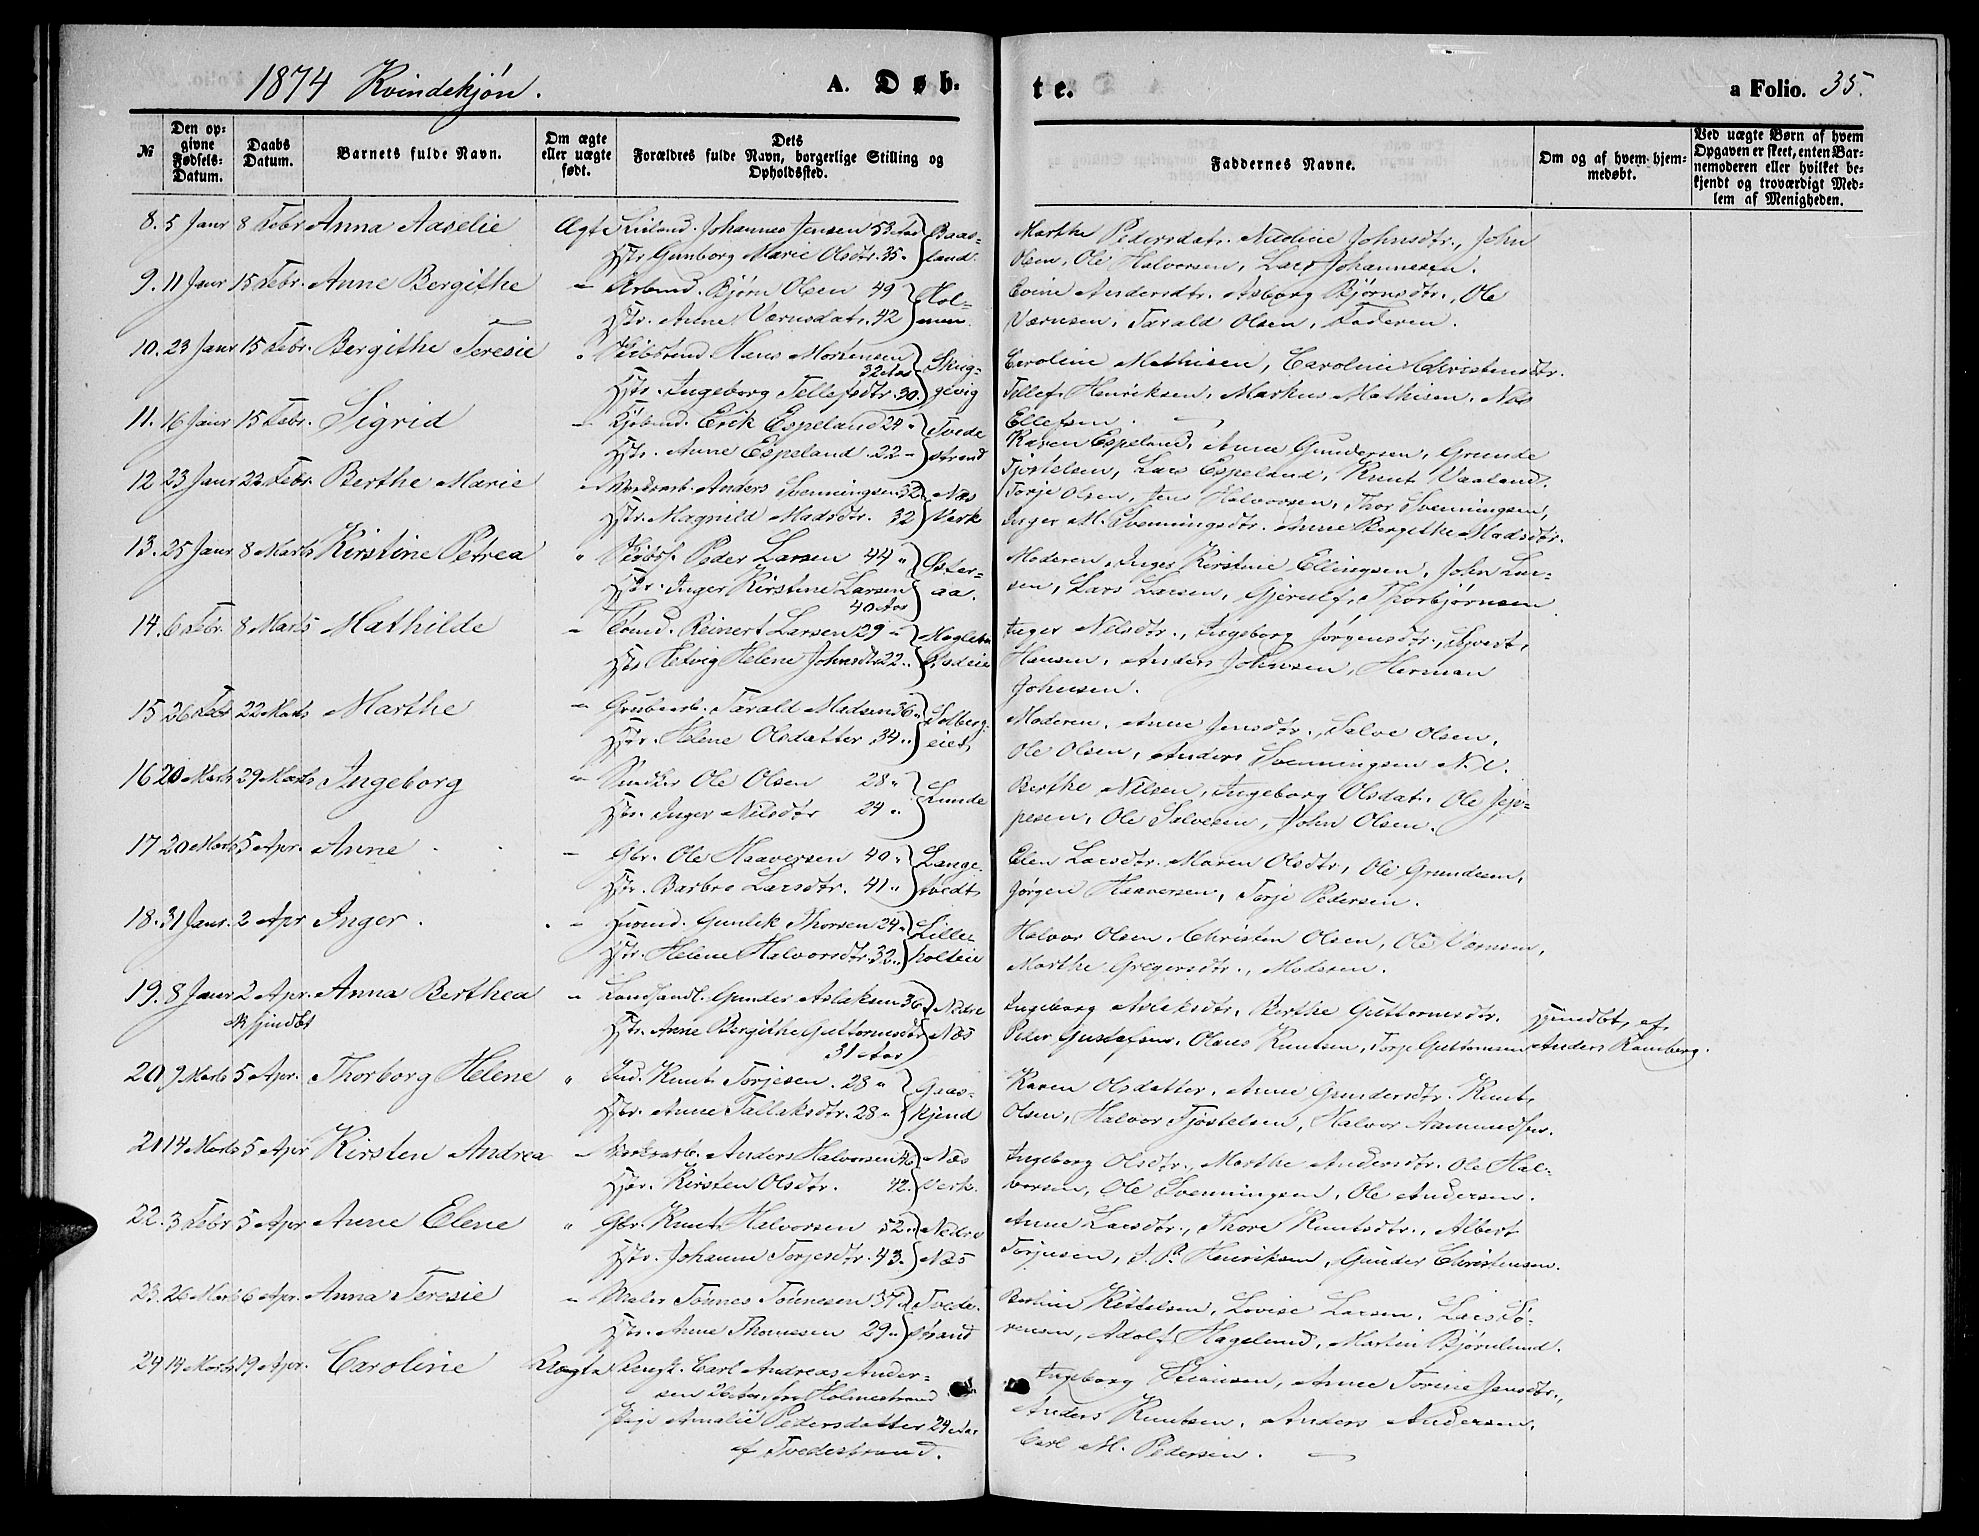 1874 Kvindekjøn.
A. Døb-
te.
a Folio. 35.
№
Den op-
givne
Fødsels-
Datum.
Daabs
Datum.
Barnets fulde Navn.
Om ægte
eller uægte
født.
Dets
Forældres fulde Navn, borgerlige Stilling og
Opholdssted.
Faddernes Navne.
Om og af hvem hjem-
medøbt.
Ved uægte Børn af hvem
Opgaven er skeet, enten Bar-
nemoderen eller hvilket be-
kjendt og troværdigt Med-
lem af Menigheden.
8. 5 Janr 8 Febr Anna Aaselie Ægte Johannes Jensen 53 Aar Baas-
Htr. Gunborg Marie Olsdtr. 35 " land.
Marthe Pedersdatr. Johnsdtr., John
Olsen, Ole Halvorsen, Lars Johannesen.
9. 11 Janr 15 Febr. Anne Bergithe " Arbmd. Bjørn Olsen 49 Hol-
Htr. Anne Værnsdatr. 42 men.
Andersdtr. Asborg Bjørnsdtr., Ole
Værnsen, Tarald Olsen, Faderen.
10. 23 Janr 15 Febr. Bergithe Teresie " Hans Mortensen
32 Aar Skug-
Htr. Ingeborg Tellefsdtr. 30. gevig
Caroline Mathisen, Caroline Christensdtr.
Tellef Henriksen, Markus Mathisen, Nils
Ellefsen.
11. 16 Janr 15 Febr. Sigrid " Kjøbmd. Erik Espeland 24 " Tvede
Htr. Anne Espeland 22 " strand
Karen Espeland, Anne Gundersen, Grunde
Tjøstelsen, Lars Espeland, Knut Vaaland.
12 23 Janr 22 Febr. Berthe Marie " Anders Svenningsen 32 Næs
Htr. Magnild Madsdtr. 32 Verk
Torje Olsen, Jens Halvorsen, Thor Svenningsen,
Inger M. Svenningsdtr. Anne Bergithe Madsdtr.
13. 25 Janr 8 Marts Kirstine Petrea " Peder Larsen 44 " Øster-
Htr. Inger Kirstine Larsen
40 Aar aa.
Moderen, Inger Kirstine Ellingsen, John Lar-
sen, Lars Larsen, Gjerulf Thorbjørnsen
14. 6 Febr. 8 Marts Mathilde " Reinert Larsen 29 "
Htr. Hetvig Helene Johnsdtr 22 "
Inger Nilsdtr., Ingeborg Jørgensdtr., Syvert
Hansen, Anders Johnsen, Herman
Johnsen.
15 26 Febr 22 Marts Marthe " Grubearb. Tarald Madsen 36 " Solberg-
Htr. Helene Olsdatter 34 " eiet,
Moderen, Anne Jensdtr., Salve Olsen,
Ole Olsen, Anders Svenningsen N. V.
16 20 Marts 29 Marts Ingeborg " Snedker Ole Olsen 28 "
Htr. Inger Nilsdtr 24 " Lunde
Berthe Nilsen, Ingeborg Olsdat. Ole Jep-
pesen, Ole Salvesen, John Olsen.
17 20 Marts 5 Apr. Anne " Gbr. Ole Haaversen 40 " Lange-
Htr. Barbro Larsdtr. 41 " tvedt,
Elen Larsdtr. Maren Olsdtr, Ole Grundesen,
Jørgen Haaversen, Torje Pedersen.
18. 31 Janr. 2 Apr Inger. " Gunlek Thorsen 24 " Lille-
Htr. Helene Halvorsdtr. 32 " holteie
Halvor Olsen, Christen Olsen, Ole Værnsen,
Marthe Gregersdtr., Moderen.
19. 8 Janr 2 Apr. Anna Berthea " Landhandl. Gunder Aslaksen 36 Nedre
Htr. Anne Bergithe Guttormsdtr Næs
31 Aar
Ingeborg Aslaksdtr, Berthe Guttormsdtr. hjemedbt, af
Peter Gustafsen, Olaus Knutsen, Torje Guttormsen Anders Ramberg.
20 9 Marts 5 Apr. Thorborg Helene " Ind. Knut Torjesen 28 " Graas-
Htr. Anne Tallaksdtr. 28 " kjend
Karen Olsdatter, Anne Gundersdtr. Knut
Olsen, Halvor Tjøstelsen, Halvor Aamundsen.
21 14 Marts 5 Apr Kirsten Andrea " Verksarb. Anders Halvorsen 46 Næs
Htr. Kirsten Olsdtr. 42. Verk.
Ingeborg Olsdtr., Marthe Andersdtr. Ole Hal-
vorsen, Ole Svenningsen, Ole Andersen.
22. 3 Febr 5 Apr Anne Elene " Gbr. Knut Halvorsen 52 " Nedre
Htr. Johanne Torjesdtr. 43. Næs
Anne Larsdtr., Thore Knutsdtr., Albert
Torjusen, Henriksen, Gunder Christensen.
23. 26 Marts 6 Apr. Anna Teresie " Maler Tønnes Tønnesen 37 " Tvede-
Htr. Anne Thomesen 29 " strand
Kittelsen, Lovise Larsen, Lars Sø-
rensen, Adolf Hagelund, Martin Bjørnlund.
24 14 Marts 19 Apr. Caroline Uægte Ungk. Carl Andreas Ander-
sen 26 Aar, fra Holmestrand
Pige Amalie Pedersdatter 24 Aar
af Tvedestrand.
Ingeborg Anne Torine Jensdtr,
Anders Knutsen, Anders Andersen,
Carl M. Pedersen.